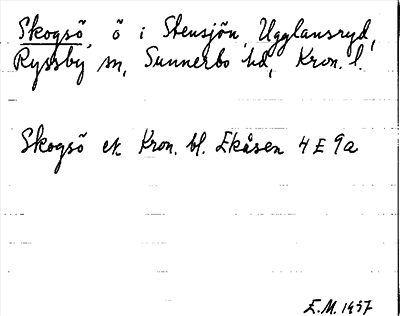 Skogsö, ö i Stensjön, Ugglansryd,
Ryssby sn, Sunnerbo hd, Kron. l.
Skogsö ek Kron. bl. Ekåsen 4 E 9a
E.M. 1957